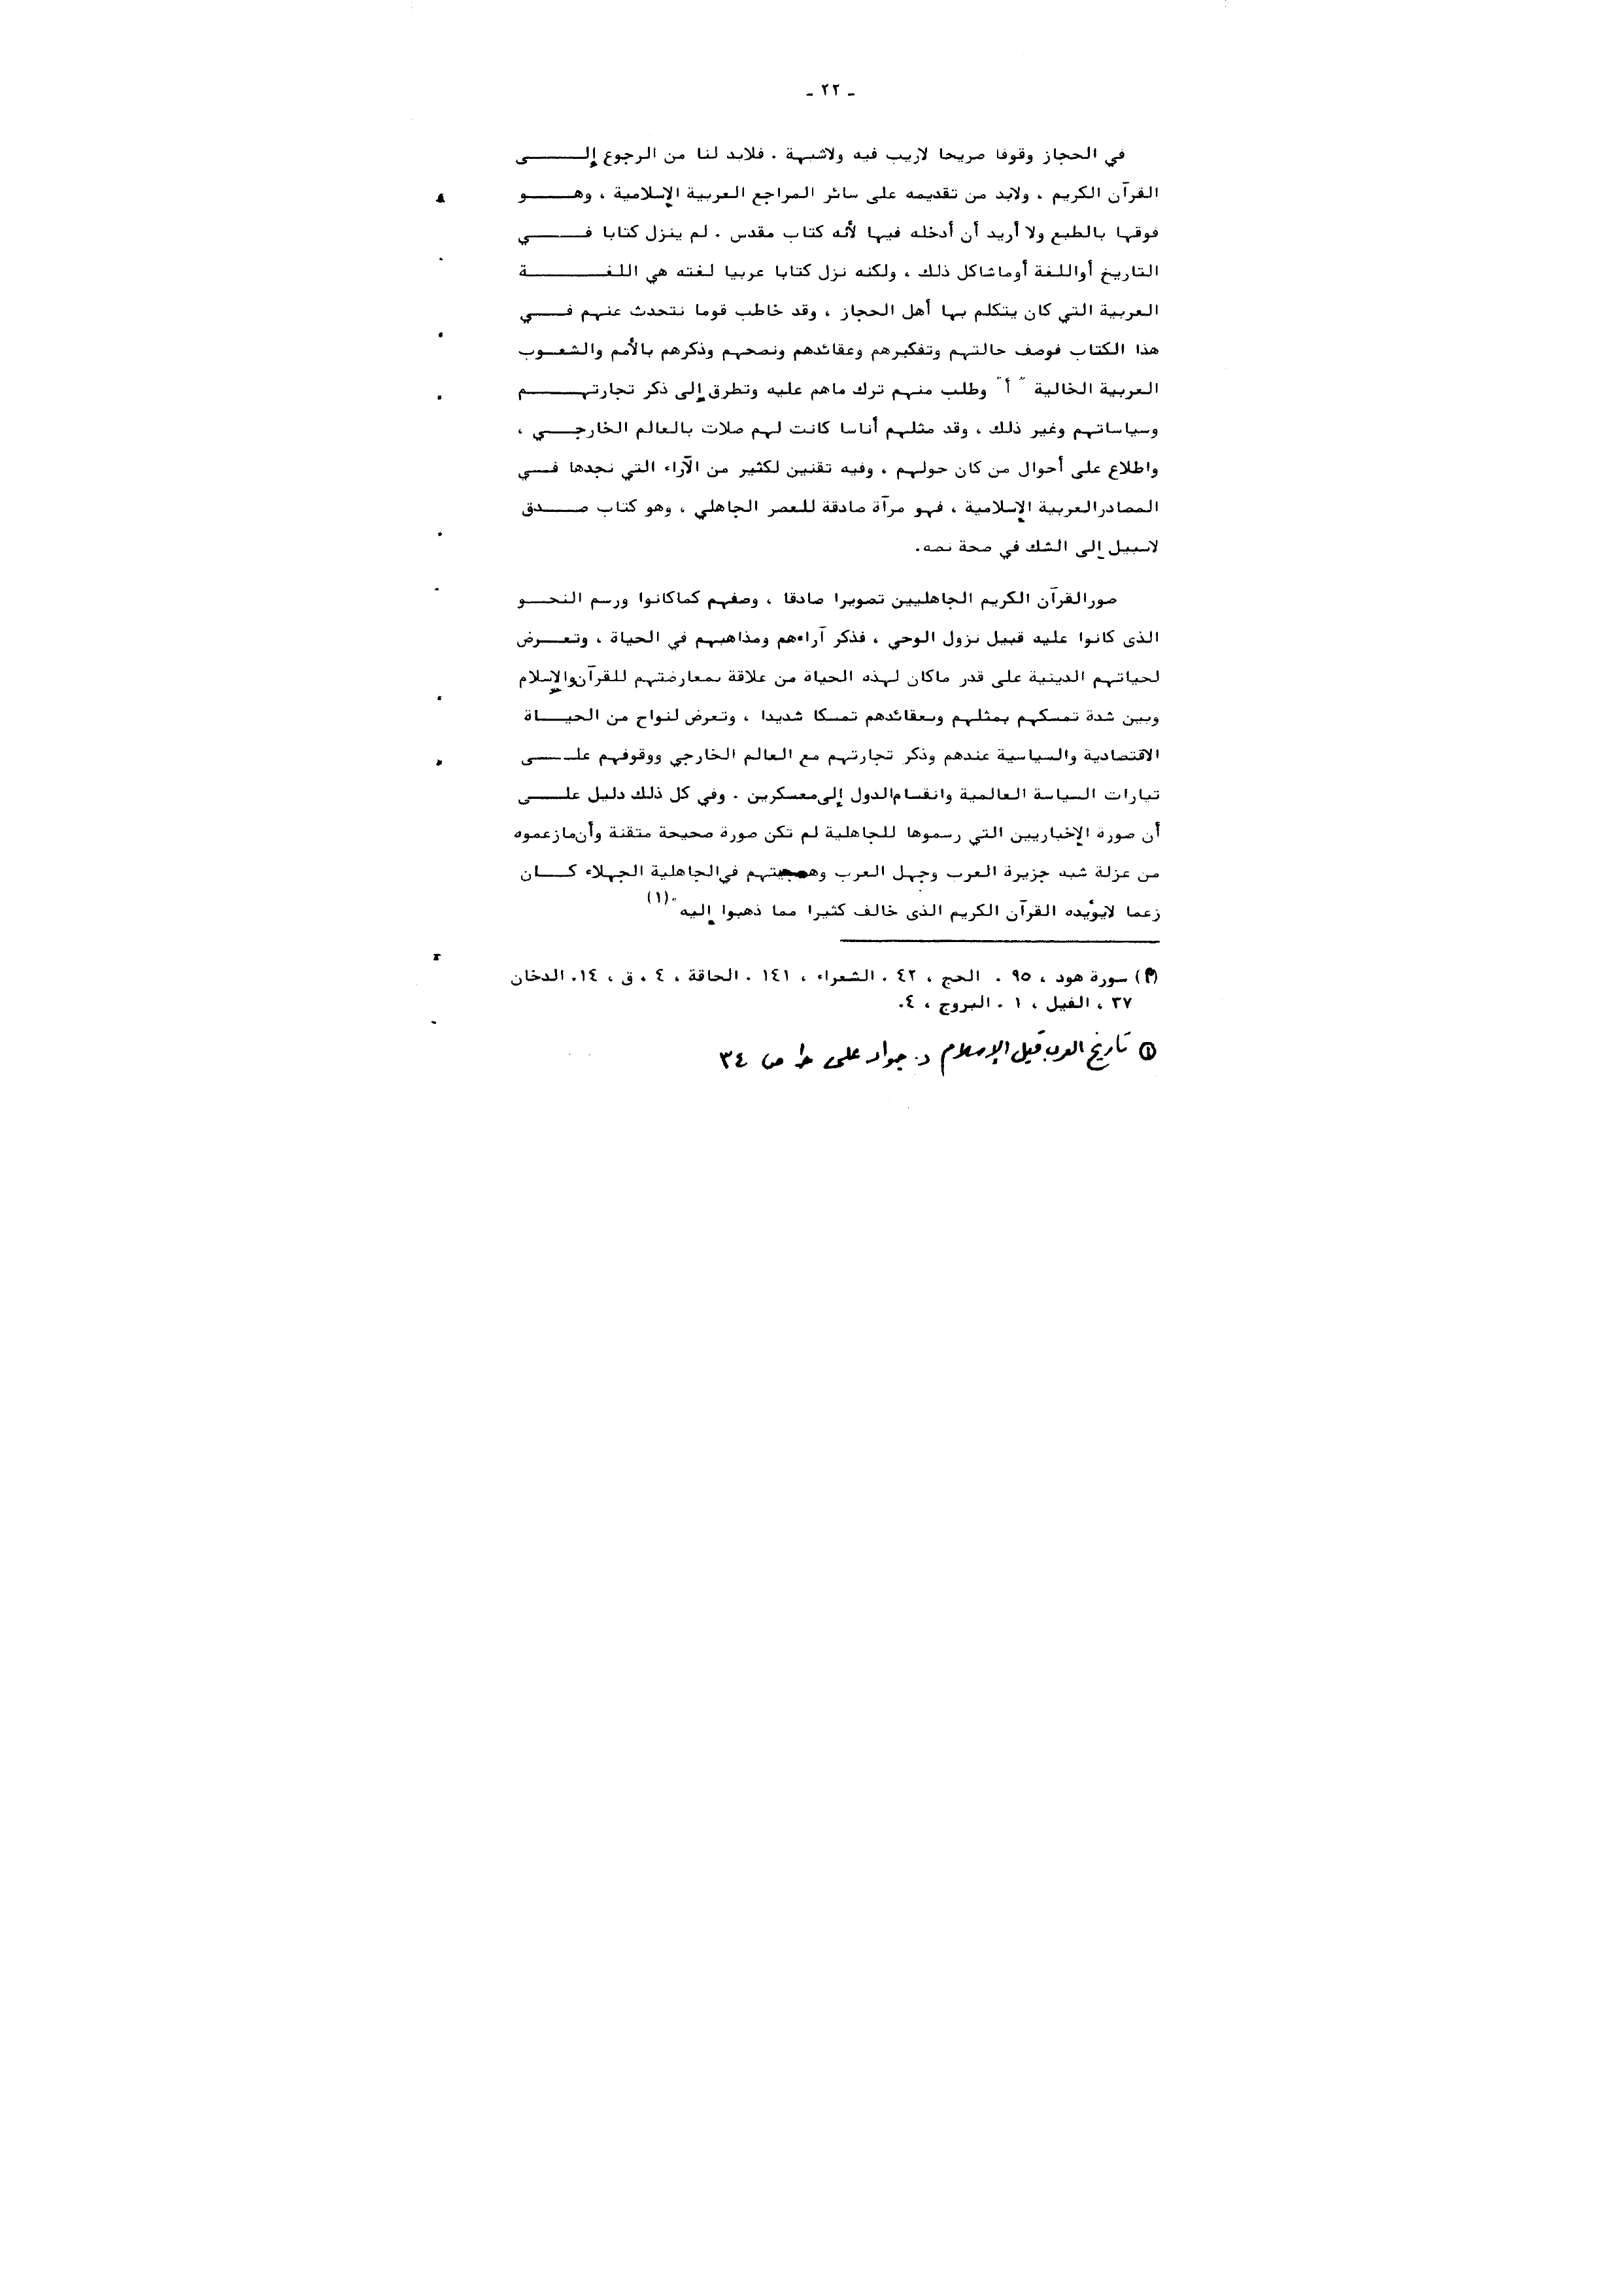 - ٢٢ -
في الحجاز وقوفا صريحا لاريب فيه ولاشبهة . فلابد لنا من الرجوع إلـــــى
القرآن الكريم ، ولابد من تقديمه على سائر المراجع العربية الإسلامية ، وهـــــو
فوقها بالطبع ولا أريد أن أدخله فيها لأنه كتاب مقدس . لم ينزل كتابا فـــــي
التاريخ أواللغة أوماشاكل ذلك ، ولكنه نزل كتابا عربيا لغته هي اللغـــــــة
العربية التي كان يتكلم بها أهل الحجاز ، وقد خاطب قوما نتحدث عنهم فـــي
هذا الكتاب فوصف حالتهم وتفكيرهم وعقائدهم ونصحهم وذكرهم بالأمم والشعـوب
العربية الخالية " أ " وطلب منهم ترك ماهم عليه وتطرق إلى ذكر تجارتهـــــم
وسياساتهم وغير ذلك ، وقد مثلهم أناسا كانت لهم صلات بالعالم الخارجـــي ،
واطلاع على أحوال من كان حولهم ، وفيه تقنين لكثير من الآراء التي نجدها فــي
المصادرالعربية الإسلامية ، فهو مرآة صادقة للعصر الجاهلي ، وهو كتاب صـــدق
لاسبيل إلى الشك في صحة نصه.
صورالقرآن الكريم الجاهليين تصويرا صادقا ، وصفهم كماكانوا ورسم النحـــو
الذى كانوا عليه قبيل نزول الوحي ، فذكر آراءهم ومذاهبهم في الحياة ، وتعـــرض
لحياتهم الدينية على قدر ماكان لهذه الحياة من علاقة بمعارضتهم للقرآن والإسلام
وبين شدة تمسكهم بمثلهم وبعقائدهم تمسكا شديدا ، وتعرض لنواح من الحيــاة
الاقتصادية والسياسية عندهم وذكر تجارتهم مع العالم الخارجي ووقوفهم علـــى
تيارات السياسة العالمية وانقسام الدول إلى معسكرين . وفي كل ذلك دليل علـــى
أن صورة الإخباريين التي رسموها للجاهلية لم تكن صورة صحيحة متقنة وأن مازعموه
من عزلة شبه جزيرة العرب وجهل العرب وهمجيتهم في الجاهلية الجهلاء كــان
زعما لايؤيده القرآن الكريم الذى خالف كثيرا مما ذهبوا إليه " (١)
(أ) سورة هود ، ٩٥ . الحج ، ٤٢ . الشعراء ، ١٤١ . الحاقة ، ٤ ، ق ، ١٤. الدخان
٣٧ ، الفيل ، ١ . البروج ، ٤.
(١) تاريخ العرب قبل الإسلام د. جواد على ط١ ص ٣٤